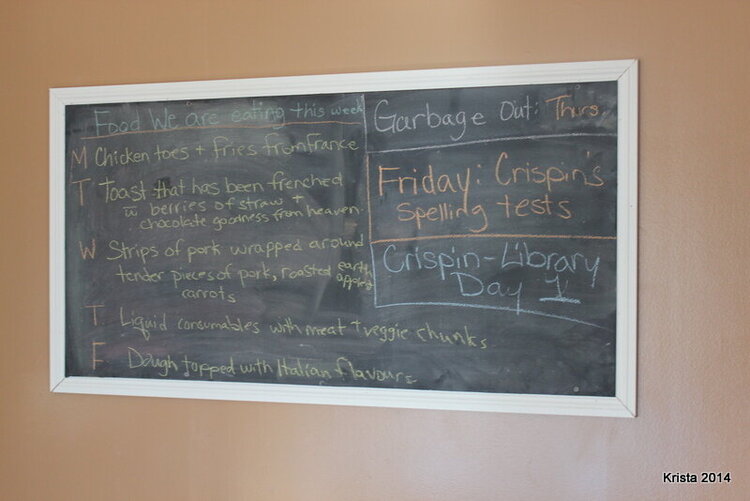 Food We are eating this week
M Chicken toes + fries from france
T Toast that has been frenched
w̅ berries of straw +
chocolate goodness from heaven.
W Strips of pork wrapped around
tender pieces of pork, roasted earth apples
carrots
T Liquid consumables with meat + veggie chunks
F Dough topped with Italian flavours
Garbage Out: Thurs.
Friday: Crispin's
Spelling tests
Crispin - Library
Day 1
Krista 2014